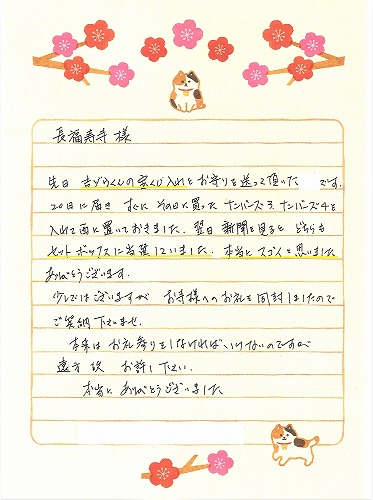 長福寿寺 様
先日 吉ゾウくんの宝くじ入れとお守りを送って頂いた です。
20日に届き すぐに その日に買った ナンバーズ3、ナンバーズ4を
入れて西に置いておきました。翌日 新聞を見ると どちらも
セットボックスに当選していました。本当に スゴイ と思いました
ありがとうございます。
少しではございますが お寺様へのお礼を同封しましたので
ご笑納下さいませ。
本来は お礼参りをしなければいけないのですが
遠方故 お許し下さい。
本当に ありがとうございました